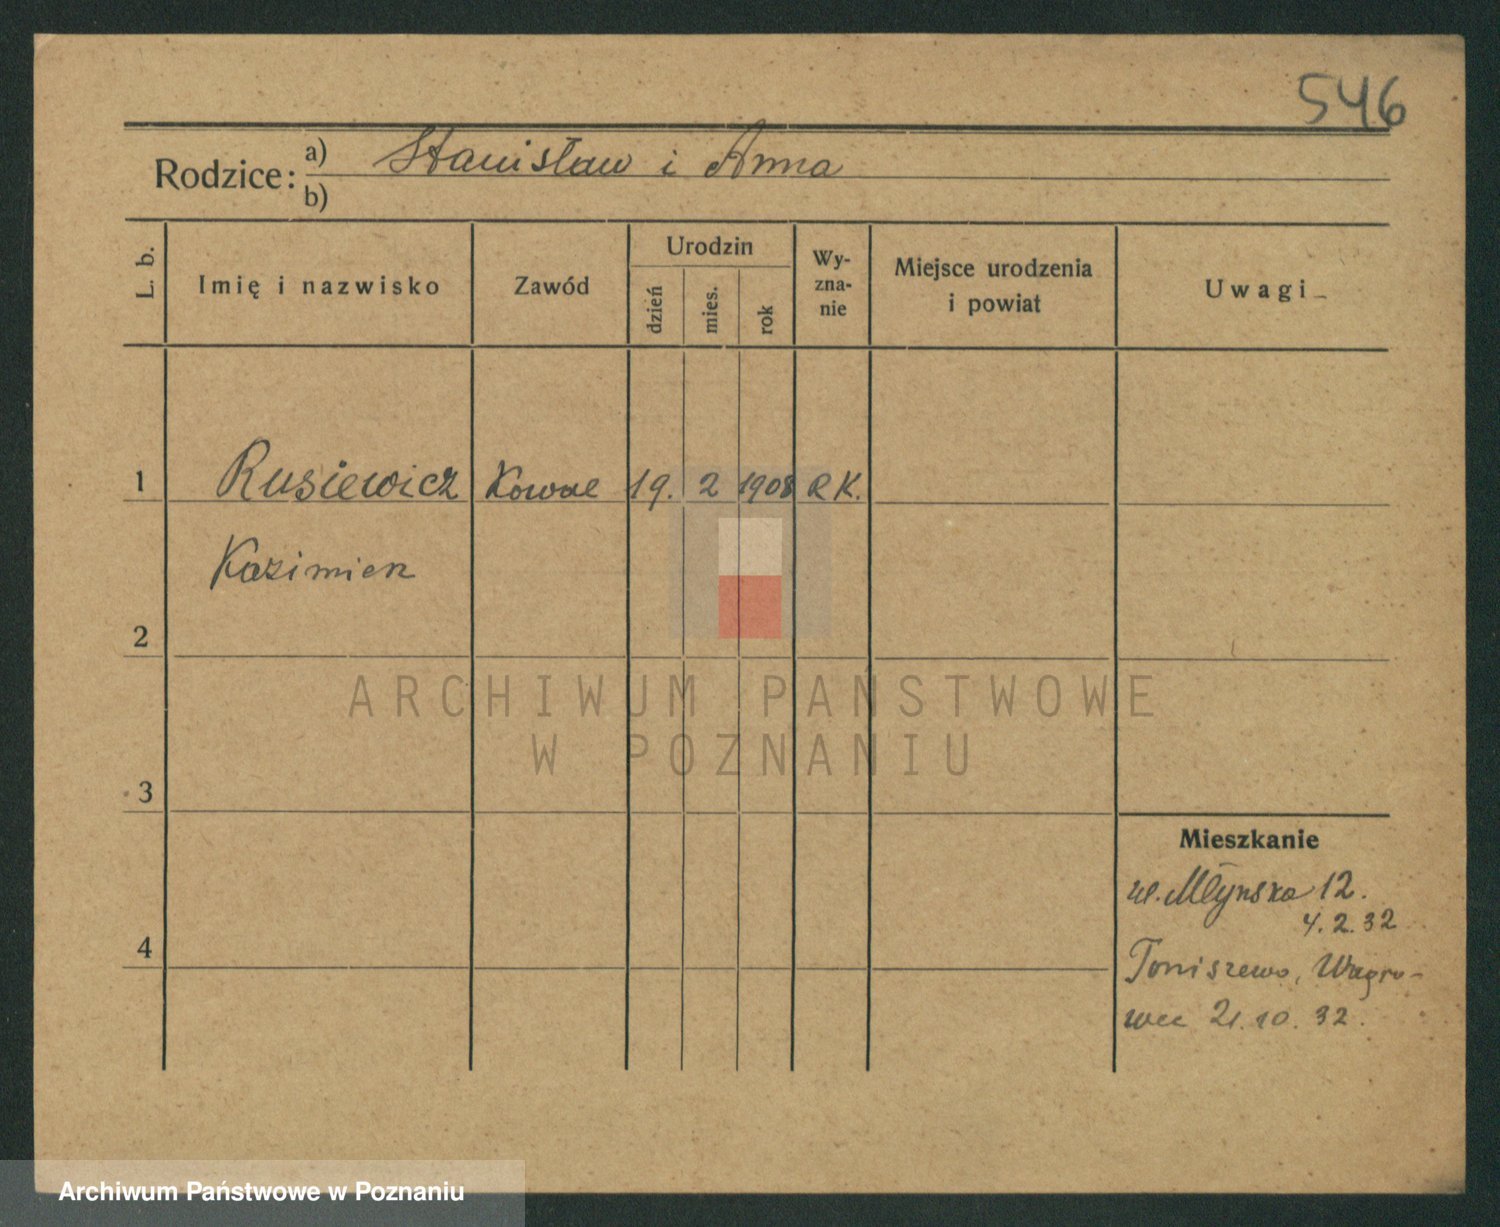 546
Rodzice: a) Stanisław i Anna
b)
L. b.
Imię i nazwisko
Zawód
Urodzin
dzień
mies.
rok
Wy-
zna-
nie
Miejsce urodzenia
i powiat
Uwagi
1 Rusiewicz Kowal 19. 2 1908 RK.
Kazimierz
2
ARCHIWUM PAŃSTWOWE
W POZNANIU
3
Mieszkanie
ul. Młyńska 12.
4.2.32
4
Toniszewo, Wągro-
wiec 21.10.32.
Archiwum Państwowe w Poznaniu